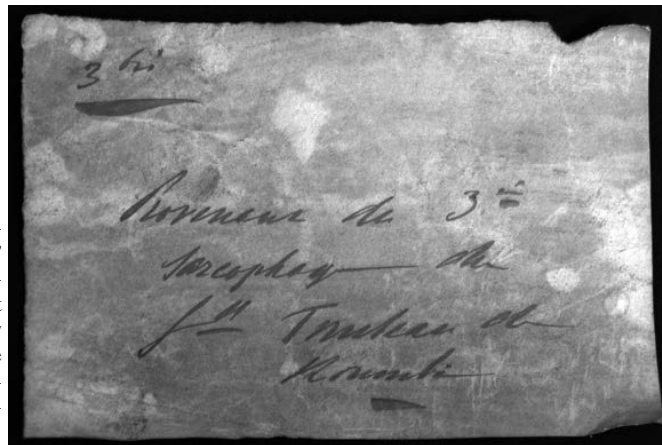 3 bis
Provenant du 3me
sarcophage du
gd Tombeau de
Koumbi